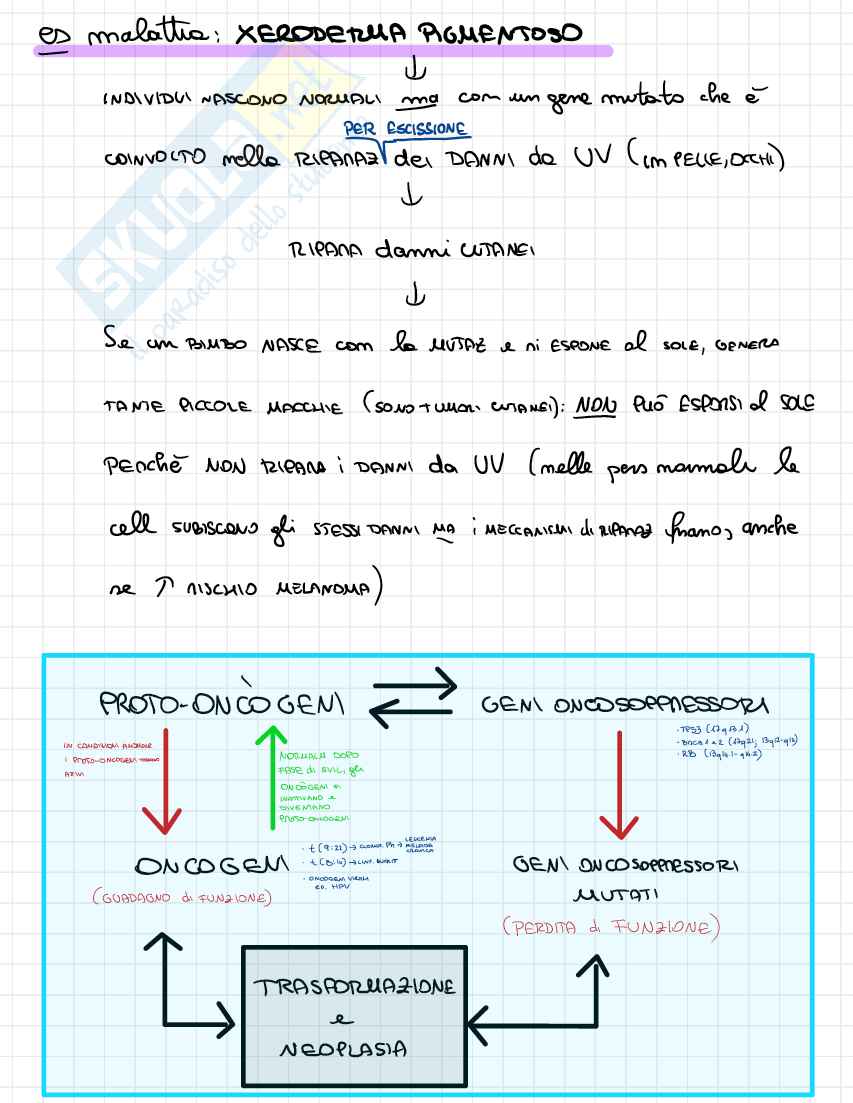 es malattia: XERODERMA PIGMENTOSO
INDIVIDUI NASCONO NORMALI ma con un gene mutato che è
PER ESCISSIONE
COINVOLTO nella RIPARAZ dei DANNI da UV (in PELLE, OCCHI)
RIPARA danni CUTANEI
Se un BIMBO NASCE con la MUTAZ e si ESPONE al SOLE, GENERA
TANTE PICCOLE MACCHIE (SONO TUMORI CUTANEI): NON PUÒ ESPORSI al SOLE
PERCHÈ NON RIPARA i DANNI da UV (nelle pers normali le
cell SUBISCONO gli STESSI DANNI MA i MECCANISMI di RIPARAZ funzano, anche
se ↑ RISCHIO MELANOMA)
PROTO-ONCÒGENI
GENI ONCOSOPPRESSORI
· TP53 (17q13.1)
· BRCA 1 e 2 (17q21; 13q12-q13)
· RB (13q14.1-q14.2)
IN CONDIZIONI ANORMALI
i PROTO-ONCOGENI
NORMALM DOPO
FASE di SVIL, gli
ONCÒGENI si
INATTIVANO e
DIVENTANO
PROTO-ONCOGENI
ONCOGENI
(GUADAGNO di FUNZIONE)
· t (9:21) → CROMOS. Ph → LEUCEMIA MIELOIDE CRONICA
· t (8:14) → LINF. BURKIT
· ONCOGENI VIRALI
es. HPV
GENI ONCOSOPPRESSORI
MUTATI
(PERDITA di FUNZIONE)
TRASFORMAZIONE
e
NEOPLASIA
SKUOLA.net
il paradiso dello studente